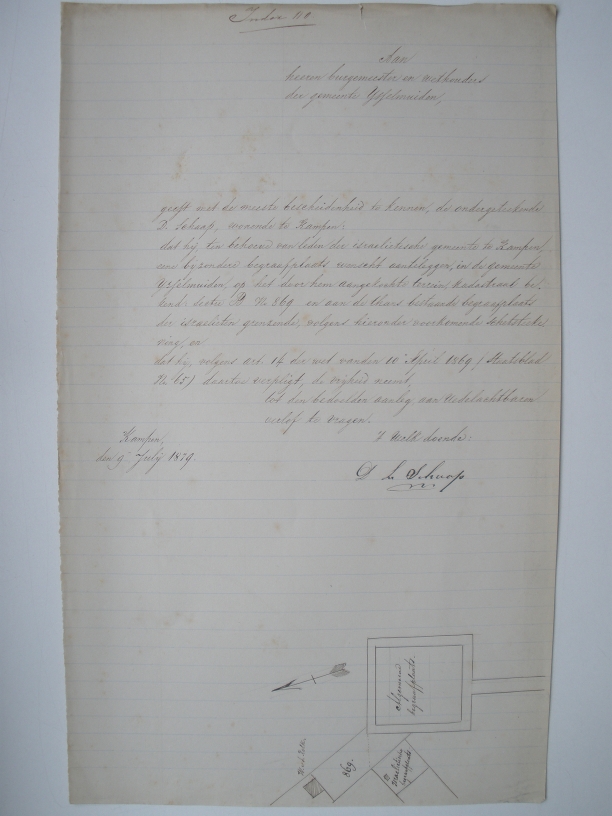 Index 119.
Aan
heeren burgemeester en wethouders
der gemeente IJsselmuiden,
geeft met de meeste bescheidenheid te kennen, de ondergeteekende
D. Schaap, wonende te Kampen:
dat hij, ten behoeve van leden der israelietische gemeente te Kampen,
eene bijzondere begraafplaats wenscht aanteleggen, in de gemeente
IJsselmuiden, op het door hem aangekochte terrein, kadastraal be-
kend: sectie B No. 869 en aan de thans bestaande begraafplaats
der israelieten grenzende, volgens hieronder voorkomende schetsteeke-
ning, en
dat hij, volgens art. 14 der wet van den 10 April 1869 (Staatsblad
No. 65) daartoe verpligt, de vrijheid neemt,
tot den bedoelden aanleg aan UEdelachtbaren
verlof te vragen.
't Welk doende:
Kampen,
den 9 Julij 1879.
Schaap
Algemeene
begraafplaats
869.
Israelitische
begraafplaats